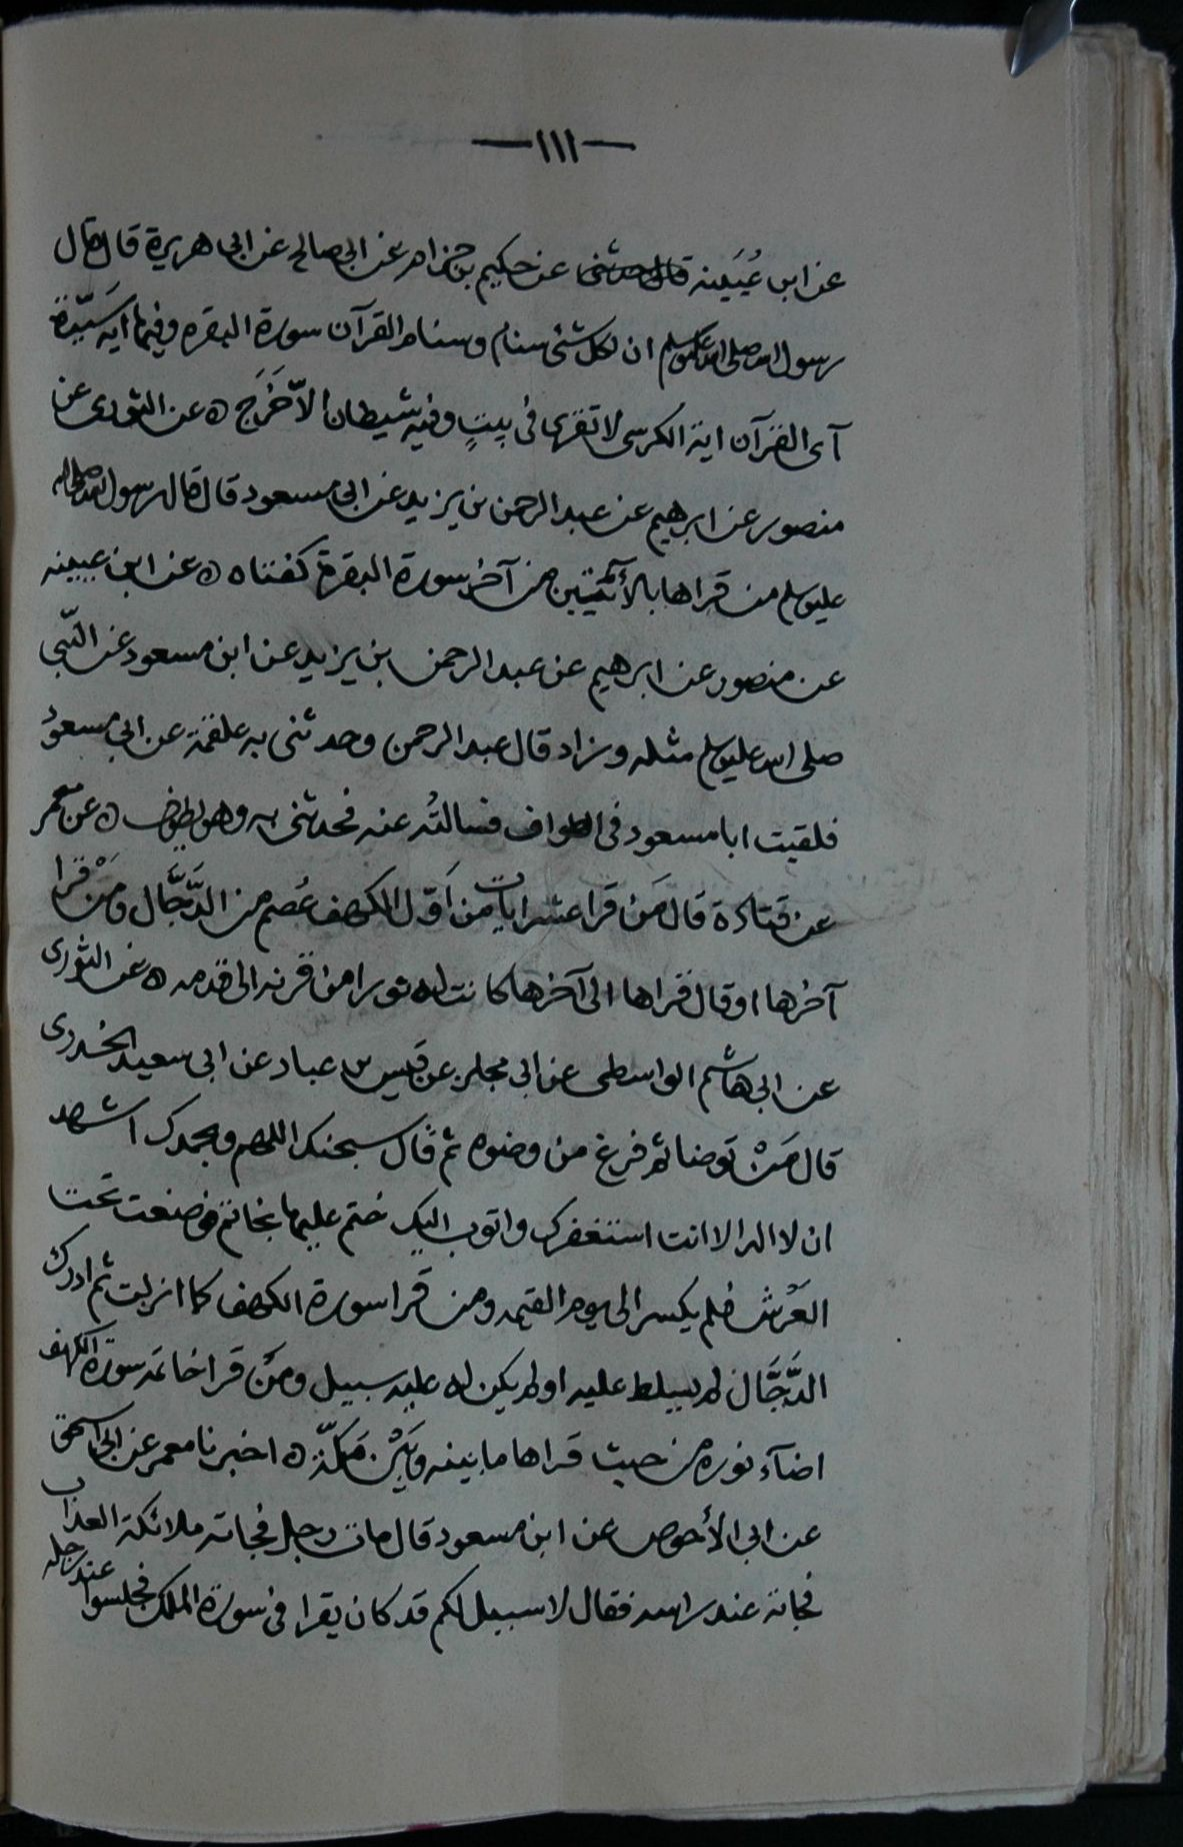 —١١١—
عن ابن عُيَينه قال حدثنى عن حكيم بن حزام عن ابى صالح عن ابى هريرة قال قال
رسول الله صلى الله عليه وسلم ان لكل شئ سنام وسنام القرآن سورة البقره وفيها ايه سَيّدة
آى القرآن اية الكرسى لا تقرا فى بيتٍ وفيه شيطان الاّ خَرَج ه عن الثورى عن
منصور عن ابرهيم عن عبد الرحمن بن يزيد عن ابى مسعود قال قال رسول الله صلى الله
عليه وسلم من قراها بالأيتين من آخر سورة البقرة كفتاه ه عن ابن عيينه
عن منصور عن ابرهيم عن عبد الرحمن بن يزيد عن ابن مسعود عن النّبى
صلى الله عليه وسلم مثله وزاد قال عبد الرحمن وحدثنى به علقمة عن ابى مسعود
فلقيت ابا مسعود فى الطواف فسالتُه عنه فحدثنى به وهو يطوف ه عن معمر
عن قتادة قال مَن قرا عشر ايات من اَوّل الكهف عُصم من الدَّجَّال ومَنْ قرا
آخرها او قال قراها الى آخرها كانت له نورا من قرنه الى قدمه ه عن الثورى
عن ابى هاشم الواسطى عن ابى مجلز عن قيس بن عباد عن ابى سعيد الخدرى
قال مَنْ توضا ثم فرغ من وضوه ثم قال سبحنك اللهم وبحمدك اشهد
ان لا اله الا انت استغفرك واتوب اليك ختم عليها بخاتم فوضعت تحت
العَرْش فلم يكسر الى يوم القيمه ومن قرا سورة الكهف كما انزلت ثم ادرك
الدَّجَّال لم يسلط عليه او لم يكن له عليه سبيل ومَن قرا خاتمة سورة الكهف
اضآء نوره من حيث قراها ما بينه وبَيْن مَكّة ه اخبرنا معمر عن ابى اسحق
عن ابى الأحوص عن ابن مسعود قال مات رجل فجاته ملائكة العذاب
فجاته عند راسه فقال لا سبيل لكم قد كان يقرا فى سورة الملك فجلسوا عند رجله